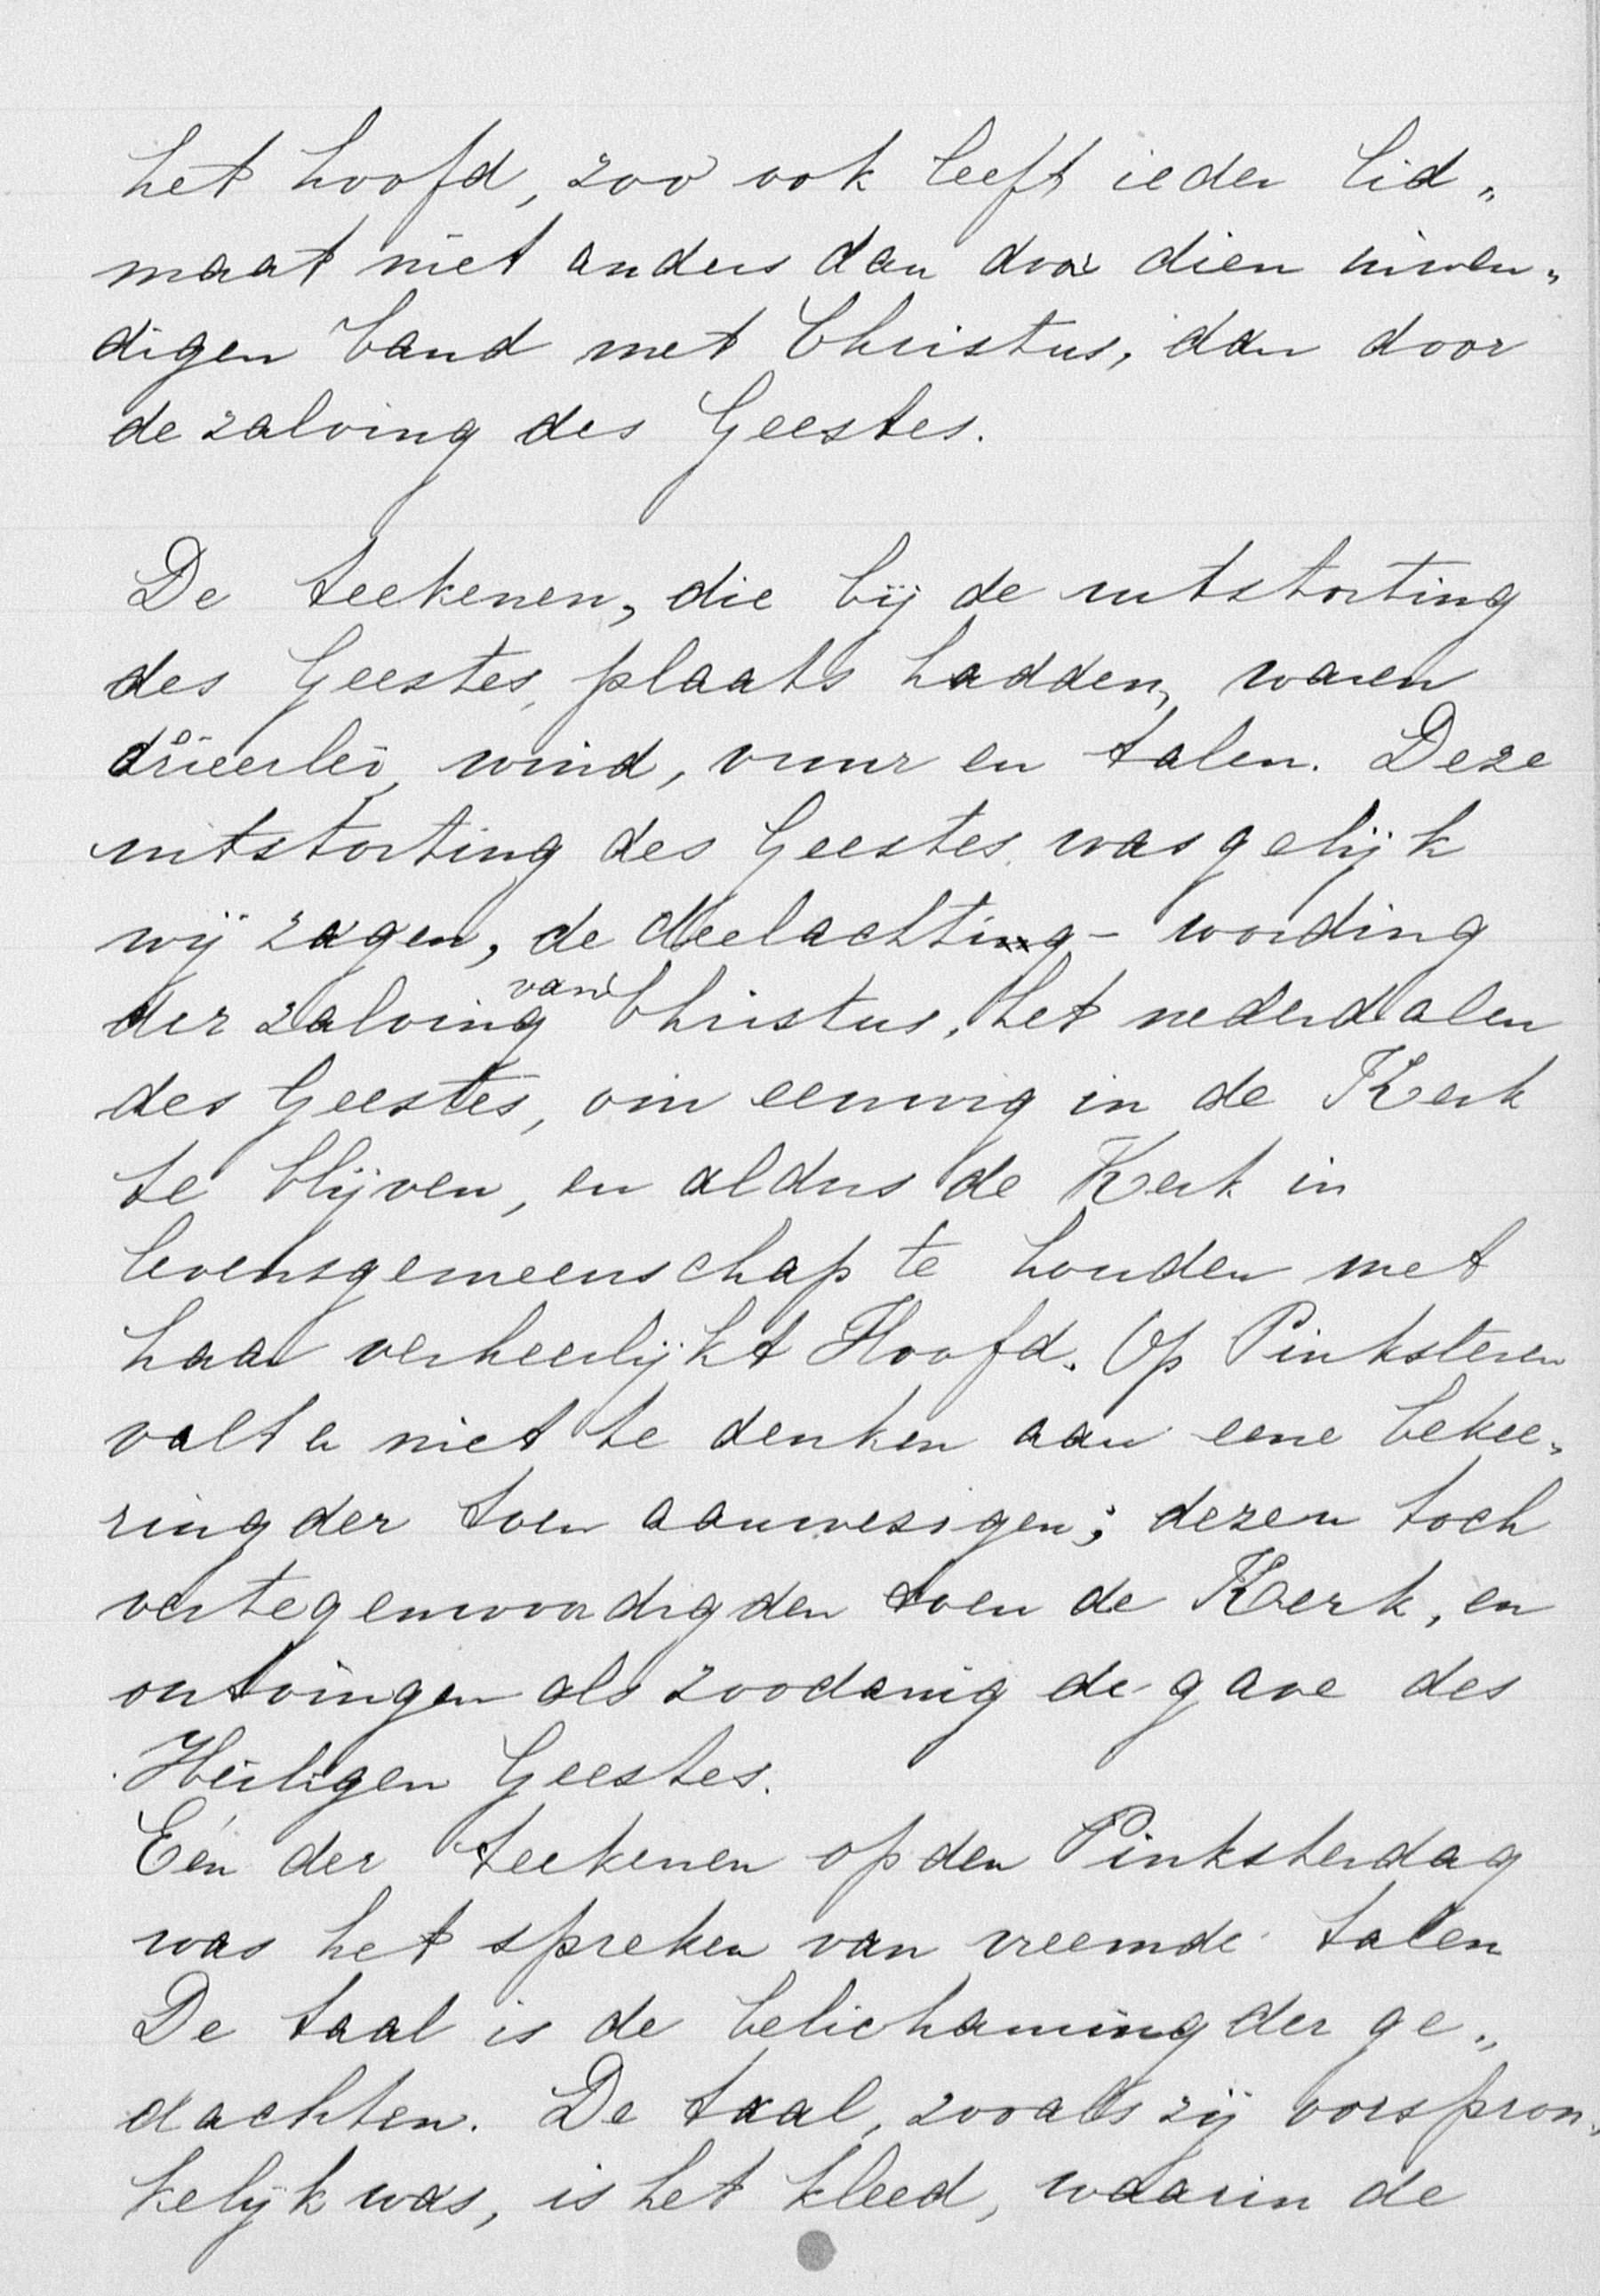 het hoofd, zoo ook leeft ieder lid„
maat niet anders dan door dien inwen„
digen band met Christus, dan door
de zalving des Geestes.
De teekenen, die bij de uitstorting
des Geestes, plaats hadden, waren
drieërlei, wind, vuur en talen. Deze
uitstorting des Geestes, was gelijk
wij zagen, de deelachtig-wording
der zalving van Christus, het nederdalen
des Geestes, om eeuwig in de Kerk
te blijven, en aldus de Kerk in
levensgemeenschap te houden met
haar verheerlijkt Hoofd. Op Pinksteren
valt er niet te denken aan eene bekee„
ring der toen aanwezigen; dezen toch
vertegenwoordigden toen de Kerk, en
ontvingen als zoodanig de gave des
Heiligen Geestes.
Eén der teekenen op den Pinksterdag
was het spreken van vreemde talen
De taal is de belichaming der ge„
dachten. De taal, zooals zij oorspron„
kelijk was, is het kleed, waarin de